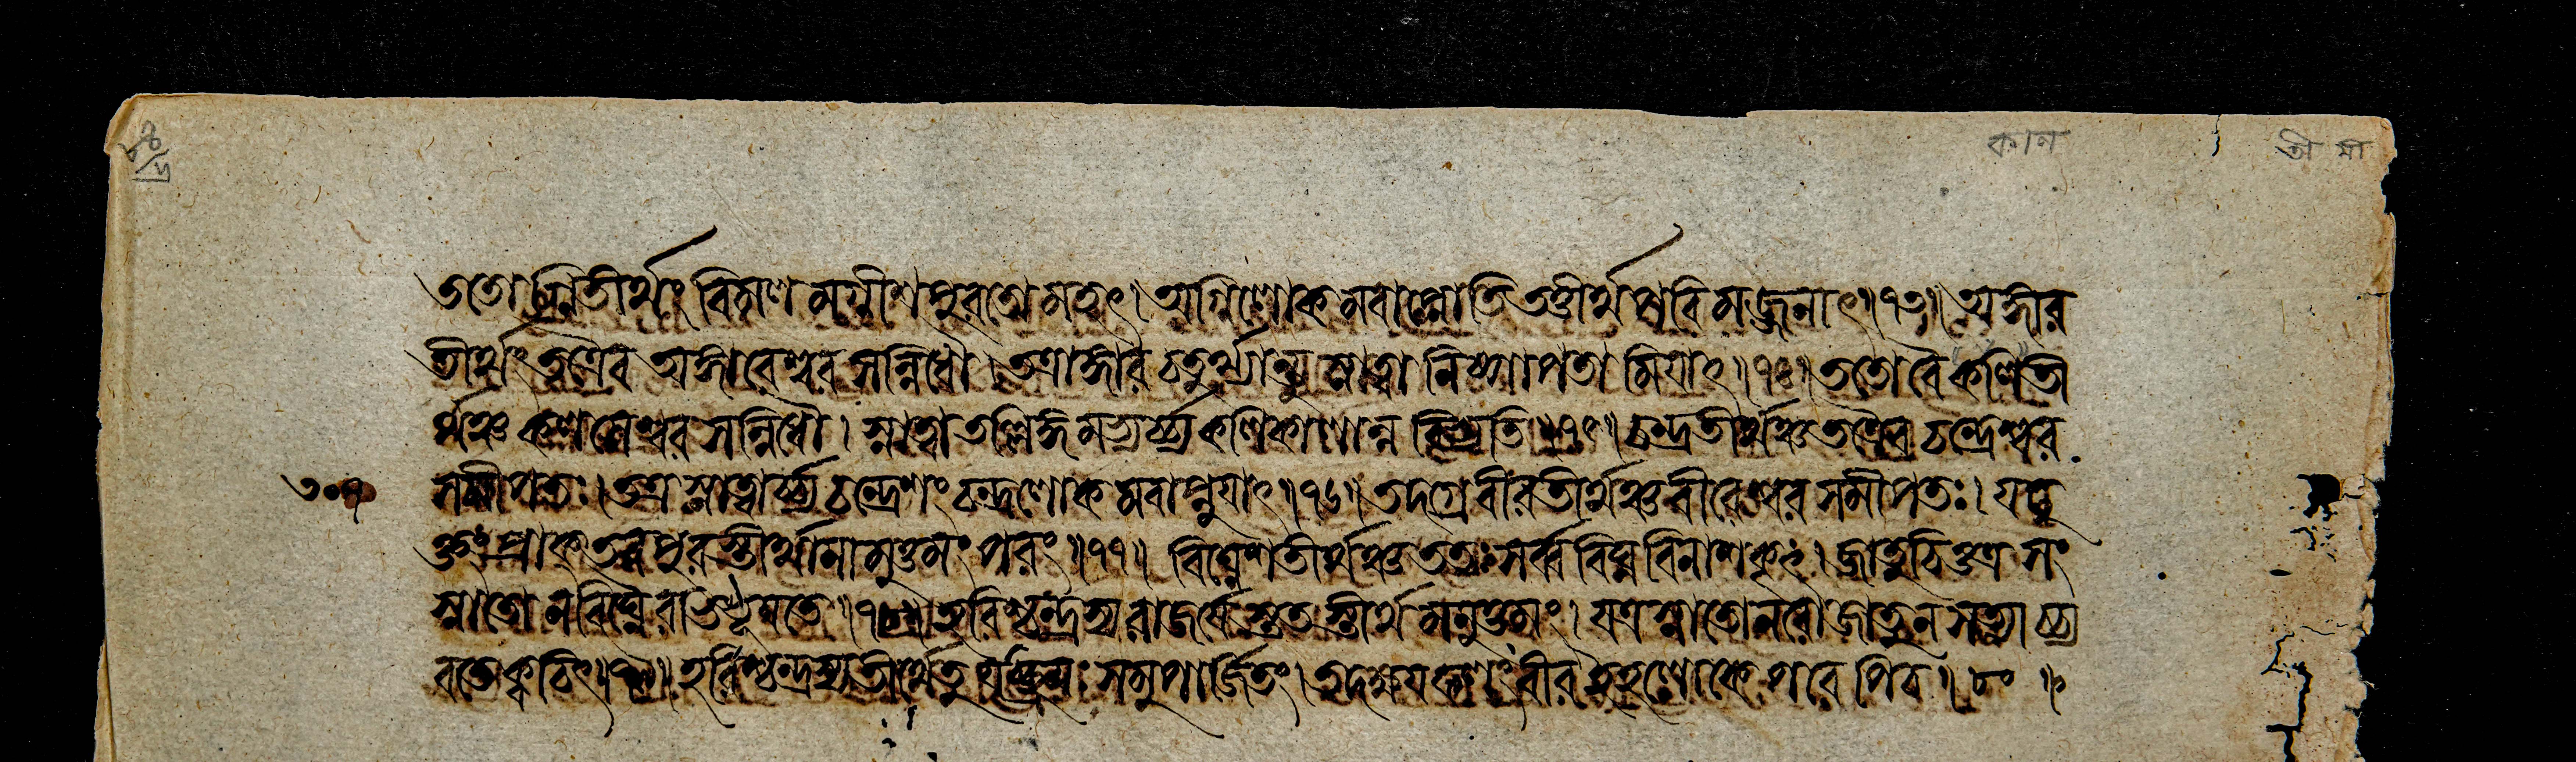 কাল
তী মা
ততোগ্নিতীর্থং বিমলমগ্নীশপুরতো মহৎ। অগ্নিলোকমবাপ্নোতি তত্তীর্থপরিমজ্জনাৎ॥৭৩॥ অঙ্গার
তীর্থং তত্রৈব অঙ্গারেশ্বরসন্নিধৌ। তত্রাঙ্গারচতুর্থ্যান্তু স্নাত্বা নিষ্পাপতামিয়াৎ॥৭৪॥ ততো বৈ কলিতী
র্থঞ্চ কলশেশ্বরসন্নিধৌ। স্নাত্বা তল্লিঙ্গমভ্যর্চ্য কলিকালান্ন বিভ্যতি॥৭৫॥ চন্দ্রতীর্থঞ্চ তত্রৈব চন্দ্রেশ্বর
সমীপতঃ। তত্র স্নাত্বার্চ্চ্য চন্দ্রেশং চন্দ্রলোকমবাপ্নুয়াৎ॥৭৬॥ তদগ্রে বীরতীর্থঞ্চ বীরেশ্বরসমীপতঃ। যদু
ক্তং প্রাক্ তব পুরস্তীর্থানামুত্তমং পরং॥৭৭॥ বিঘ্নেশতীর্থঞ্চ ততঃ সর্ব্ববিঘ্নবিনাশকৃৎ। জাতুচিত্তত্র সং
স্নাতো ন বিঘ্নৈরভিভূয়তে॥৭৮॥ হরিশ্চন্দ্রস্য রাজর্ষেস্ততস্তীর্থমনুত্তমং। যত্র স্নাতো নরো জাতু ন সত্যাচ্চ্য
বতে ক্বচিৎ॥৭৯॥ হরিশ্চন্দ্রস্য তীর্থে তু যচ্ছ্রেয়ঃ সমুপার্জিতং। তদক্ষয়ফলং বীর ইহলোকে পরেপি চ॥৮০॥
৩০৭